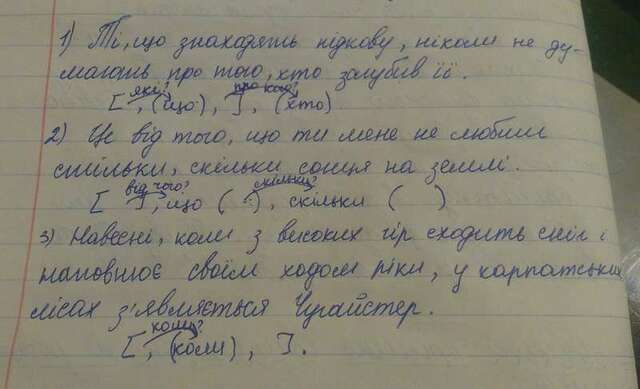 1) Ті, що знаходять підкову, ніколи не ду-
мають про того, хто загубив її.
які? про кого?
[ , (що), ], (хто)
2) Це від того, що ти мене не любиш
стільки, скільки сонця на землі.
від чого? скільки?
[ ], що ( ), скільки ( )
3) Навесні, коли з високих гір сходить сніг і
наповнює своїм ходом ріки, у карпатських
лісах з'являється Чугайстер.
коли?
[ , (коли), ].